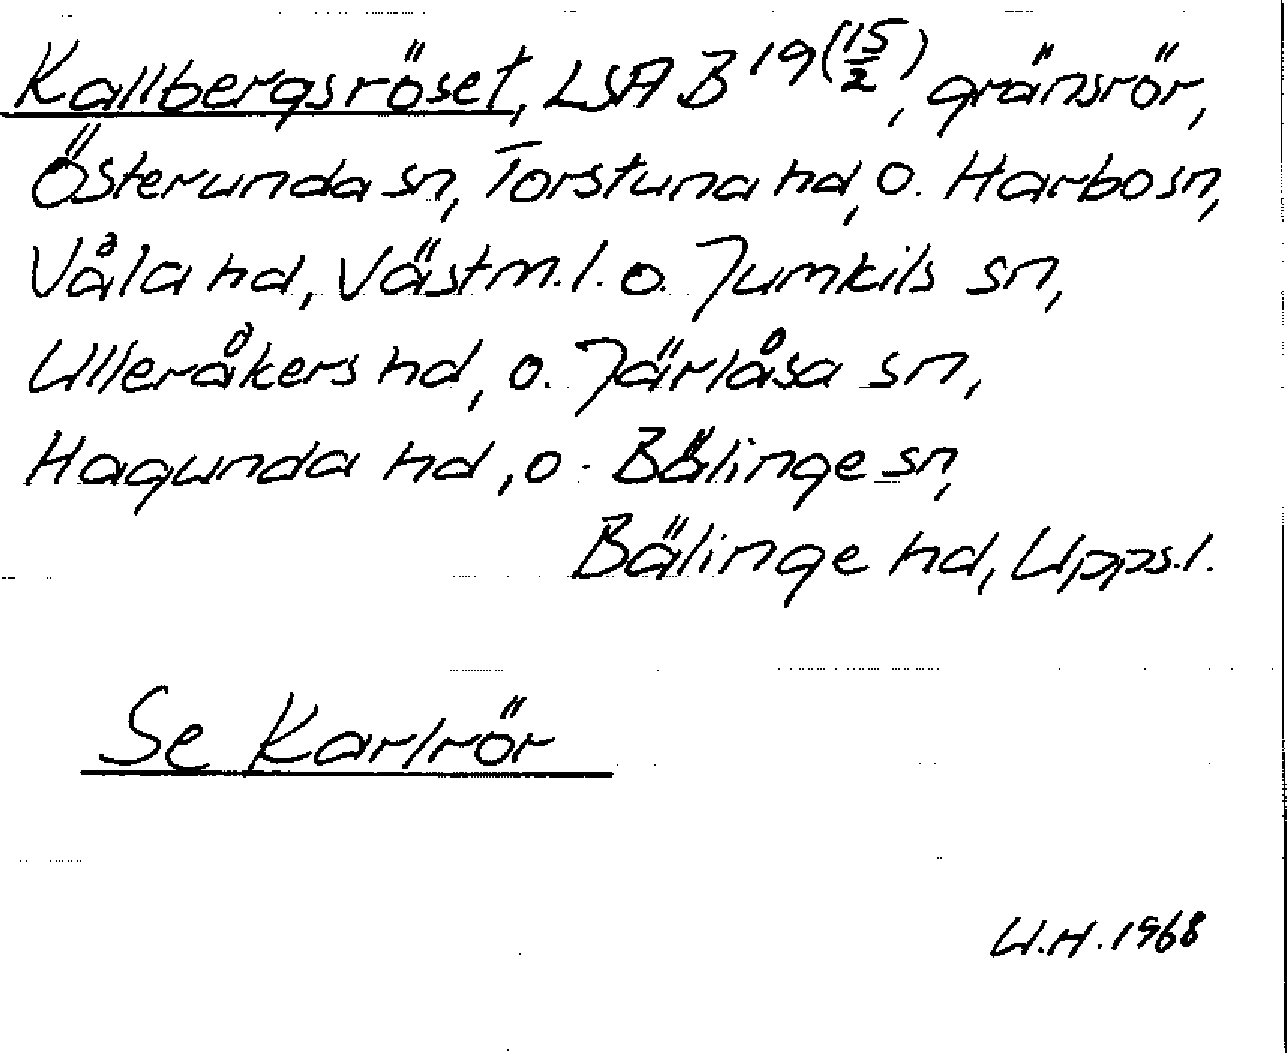 Kallbergsröset, LSA B 19 (15/2), gränsrör,
Österunda sn, Torstuna hd, o. Harbo sn,
Våla hd, Västm.l. o. Jumkils sn,
Ulleråkers hd, o. Järlåsa sn,
Hagunda hd, o. Bälinge sn,
Bälinge hd, Upps.l.
Se Karlrör
U.H. 1968